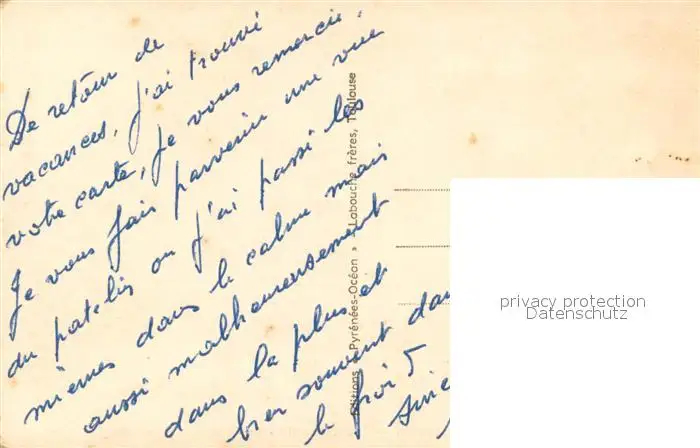 De retour de
vacances, j'ai trouvé
votre carte, je vous remercie.
Je vous fais parvenir une vue
du patelin ou j'ai passé les
miennes dans le calme mais
aussi malheureusement
dans la pluie et
bien souvent dans
le froid
Editions « Pyrénées-Océan » Labouche frères, Toulouse
privacy protection
Datenschutz